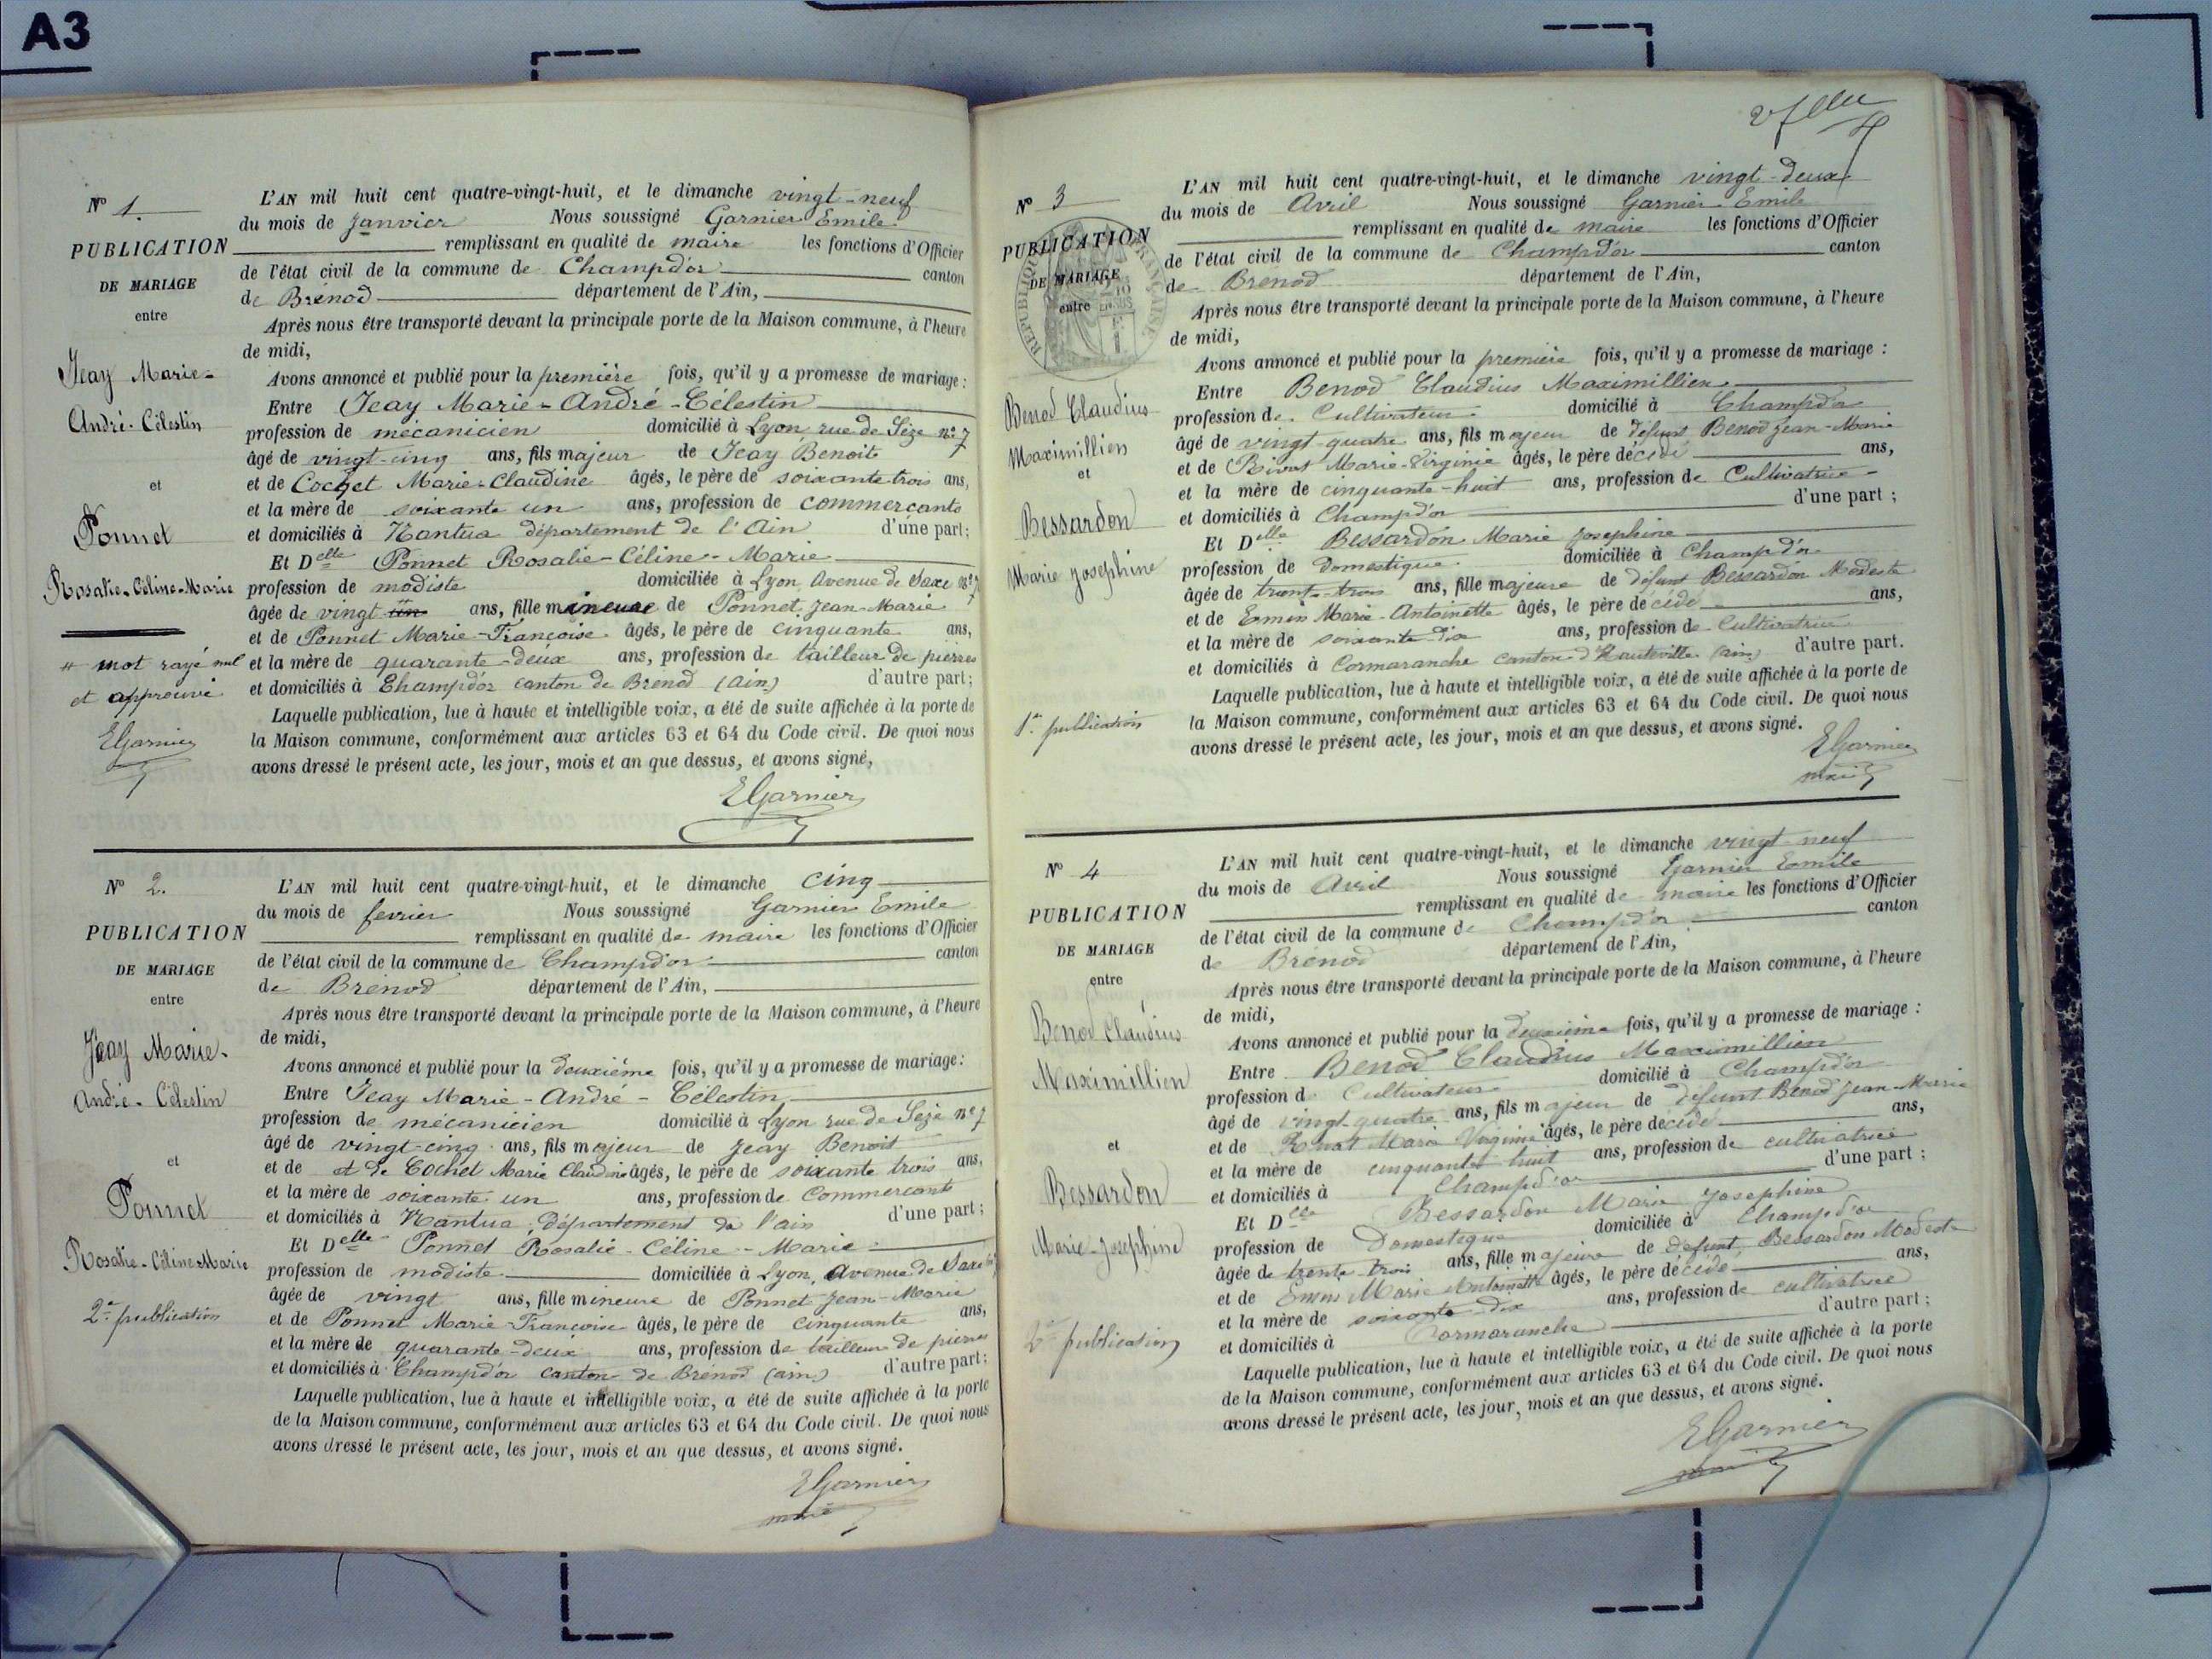 A3
Nº 1.
PUBLICATION
DE MARIAGE
entre
Jeay Marie-
André-Célestin
et
Ponnet
Rosalie-Céline-Marie
# mot rayé nul
et approuvé
EGarnier
L'AN mil huit cent quatre-vingt-huit, et le dimanche vingt-neuf
du mois de Janvier Nous soussigné Garnier Emile
remplissant en qualité de maire les fonctions d'Officier
de l'état civil de la commune de Champd'or canton
de Brénod département de l'Ain,
Après nous être transporté devant la principale porte de la Maison commune, à l'heure
de midi,
Avons annoncé et publié pour la première fois, qu'il y a promesse de mariage :
Entre Jeay Marie-André-Célestin
profession de mécanicien domicilié à Lyon rue de Sèze nº 7
âgé de vingt-cinq ans, fils majeur de Jeay Benoit
et de Cochet Marie-Claudine âgés, le père de soixante trois ans,
et la mère de soixante un ans, profession de commerçants
et domiciliés à Nantua département de l'Ain d'une part;
Et Delle Ponnet Rosalie-Céline-Marie
profession de modiste domiciliée à Lyon Avenue de Saxe nº 7
âgée de vingt un # ans, fille mineure de Ponnet Jean-Marie
et de Ponnet Marie-Françoise âgés, le père de cinquante ans,
et la mère de quarante-deux ans, profession de tailleur de pierres
et domiciliés à Champd'or canton de Brénod (Ain) d'autre part;
Laquelle publication, lue à haute et intelligible voix, a été de suite affichée à la porte de
la Maison commune, conformément aux articles 63 et 64 du Code civil. De quoi nous
avons dressé le présent acte, les jour, mois et an que dessus, et avons signé,
EGarnier
Nº 2.
PUBLICATION
DE MARIAGE
entre
Jeay Marie-
André-Célestin
et
Ponnet
Rosalie-Céline-Marie
2e publication
L'AN mil huit cent quatre-vingt-huit, et le dimanche cinq
du mois de fevrier Nous soussigné Garnier Emile
remplissant en qualité de maire les fonctions d'Officier
de l'état civil de la commune de Champd'or canton
de Brénod département de l'Ain,
Après nous être transporté devant la principale porte de la Maison commune, à l'heure
de midi,
Avons annoncé et publié pour la deuxième fois, qu'il y a promesse de mariage:
Entre Jeay Marie-André-Célestin
profession de mécanicien domicilié à Lyon rue de Sèze nº 7
âgé de vingt-cinq ans, fils majeur de Jeay Benoit
et de et de Cochet Marie Claudine âgés, le père de soixante trois ans,
et la mère de soixante un ans, profession de Commerçants
et domiciliés à Nantua, département de l'ain d'une part ;
Et Delle Ponnet Rosalie-Céline-Marie
profession de modiste domiciliée à Lyon, Avenue de Saxe
âgée de vingt ans, fille mineure de Ponnet Jean-Marie
et de Ponnet Marie-Françoise âgés, le père de cinquante ans,
et la mère de quarante-deux ans, profession de tailleur de pierres
et domiciliés à Champd'or canton de Brénod (ain) d'autre part;
Laquelle publication, lue à haute et intelligible voix, a été de suite affichée à la porte
de la Maison commune, conformément aux articles 63 et 64 du Code civil. De quoi nous
avons dressé le présent acte, les jour, mois et an que dessus, et avons signé.
EGarnier
maire
Nº 3
PUBLICATION
DE MARIAGE
entre
Benod Claudius
Maximillien
et
Bessardon
Marie Josephine
1re publication
L'AN mil huit cent quatre-vingt-huit, et le dimanche vingt-deux
du mois de Avril Nous soussigné Garnier Emile
remplissant en qualité de maire les fonctions d'Officier
de l'état civil de la commune de Champd'or canton
de Brénod département de l'Ain,
Après nous être transporté devant la principale porte de la Maison commune, à l'heure
de midi,
Avons annoncé et publié pour la première fois, qu'il y a promesse de mariage :
Entre Benod Claudius Maximillien
profession de Cultivateur domicilié à Champd'or
âgé de vingt-quatre ans, fils majeur de défunt Benod Jean-Marie
et de Rivat Marie-Virginie âgés, le père décédé ans,
et la mère de cinquante-huit ans, profession de Cultivatrice
et domiciliés à Champd'or d'une part ;
Et Delle Bessardon Marie Josephine
profession de domestique domiciliée à Champd'or
âgée de trente-trois ans, fille majeure de défunt Bessardon Modeste
et de Emin Marie-Antoinette âgés, le père décédé ans,
et la mère de soixante-dix ans, profession de Cultivatrice
et domiciliés à Cormaranche canton d'Hauteville (ain) d'autre part.
Laquelle publication, lue à haute et intelligible voix, a été de suite affichée à la porte de
la Maison commune, conformément aux articles 63 et 64 du Code civil. De quoi nous
avons dressé le présent acte, les jour, mois et an que dessus, et avons signé.
EGarnier
maire
Nº 4
PUBLICATION
DE MARIAGE
entre
Benod Claudius
Maximillien
et
Bessardon
Marie-Josephine
2e publication
L'AN mil huit cent quatre-vingt-huit, et le dimanche vingt-neuf
du mois de Avril Nous soussigné Garnier Emile
remplissant en qualité de maire les fonctions d'Officier
de l'état civil de la commune de Champd'or canton
de Brénod département de l'Ain,
Après nous être transporté devant la principale porte de la Maison commune, à l'heure
de midi,
Avons annoncé et publié pour la deuxième fois, qu'il y a promesse de mariage :
Entre Benod Claudius Maximillien
profession de Cultivateur domicilié à Champd'or
âgé de vingt-quatre ans, fils majeur de défunt Benod Jean-Marie
et de Rivat Marie Virginie âgés, le père décédé ans,
et la mère de cinquante huit ans, profession de cultivatrice
et domiciliés à Champd'or d'une part ;
Et Delle Bessardon Marie Josephine
profession de Domestique domiciliée à Champd'or
âgée de trente-trois ans, fille majeure de defunt Bessardon Modeste
et de Emin Marie Antoinette âgés, le père décédé ans,
et la mère de soixante-dix ans, profession de cultivatrice
et domiciliés à Cormaranche d'autre part ;
Laquelle publication, lue à haute et intelligible voix, a été de suite affichée à la porte
de la Maison commune, conformément aux articles 63 et 64 du Code civil. De quoi nous
avons dressé le présent acte, les jour, mois et an que dessus, et avons signé.
EGarnier